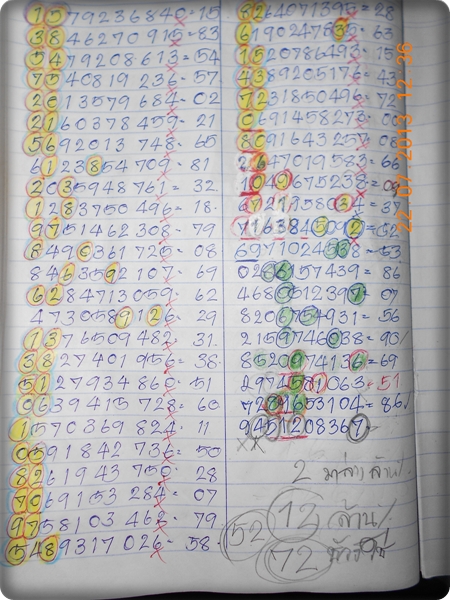 15792368 40 = 15
3846270915 = 83
5479208613 = 54
7540819236 = 57
2013579684 = 02
2160378459 = 21
5692013748 = 65
6123854709 = 81
2035948761 = 32
1283750496 = 18
9751462308 = 79
8490361725 = 08
8463592107 = 69
6284713059 = 62
4730589126 = 29
1376509482 = 31
3827401956 = 38
5127934860 = 51
0639415728 = 60
1570369824 = 11
0591842736 = 50
8261943750 = 28
7069153284 = 07
9758103462 = 79
5489317026 = 58
8264071395 = 28
6190247835 = 63
1520786493 = 15
4389205176 = 43
7231850496 = 72
0691458273 = 00
8091643257 = 08
2647019583 = 66
1049675238
6721375804 = 37
7163845092
6971102453 8 = 53
0286157439 = 86
4680512397 = 07
8206754931 = 56
2159746038 = 93/
8520974136 = 69
2974581063 = 51
7281653104 = 86
9451208367
××
2
12 ล้าน/
52
72
22 07 2013 12 36